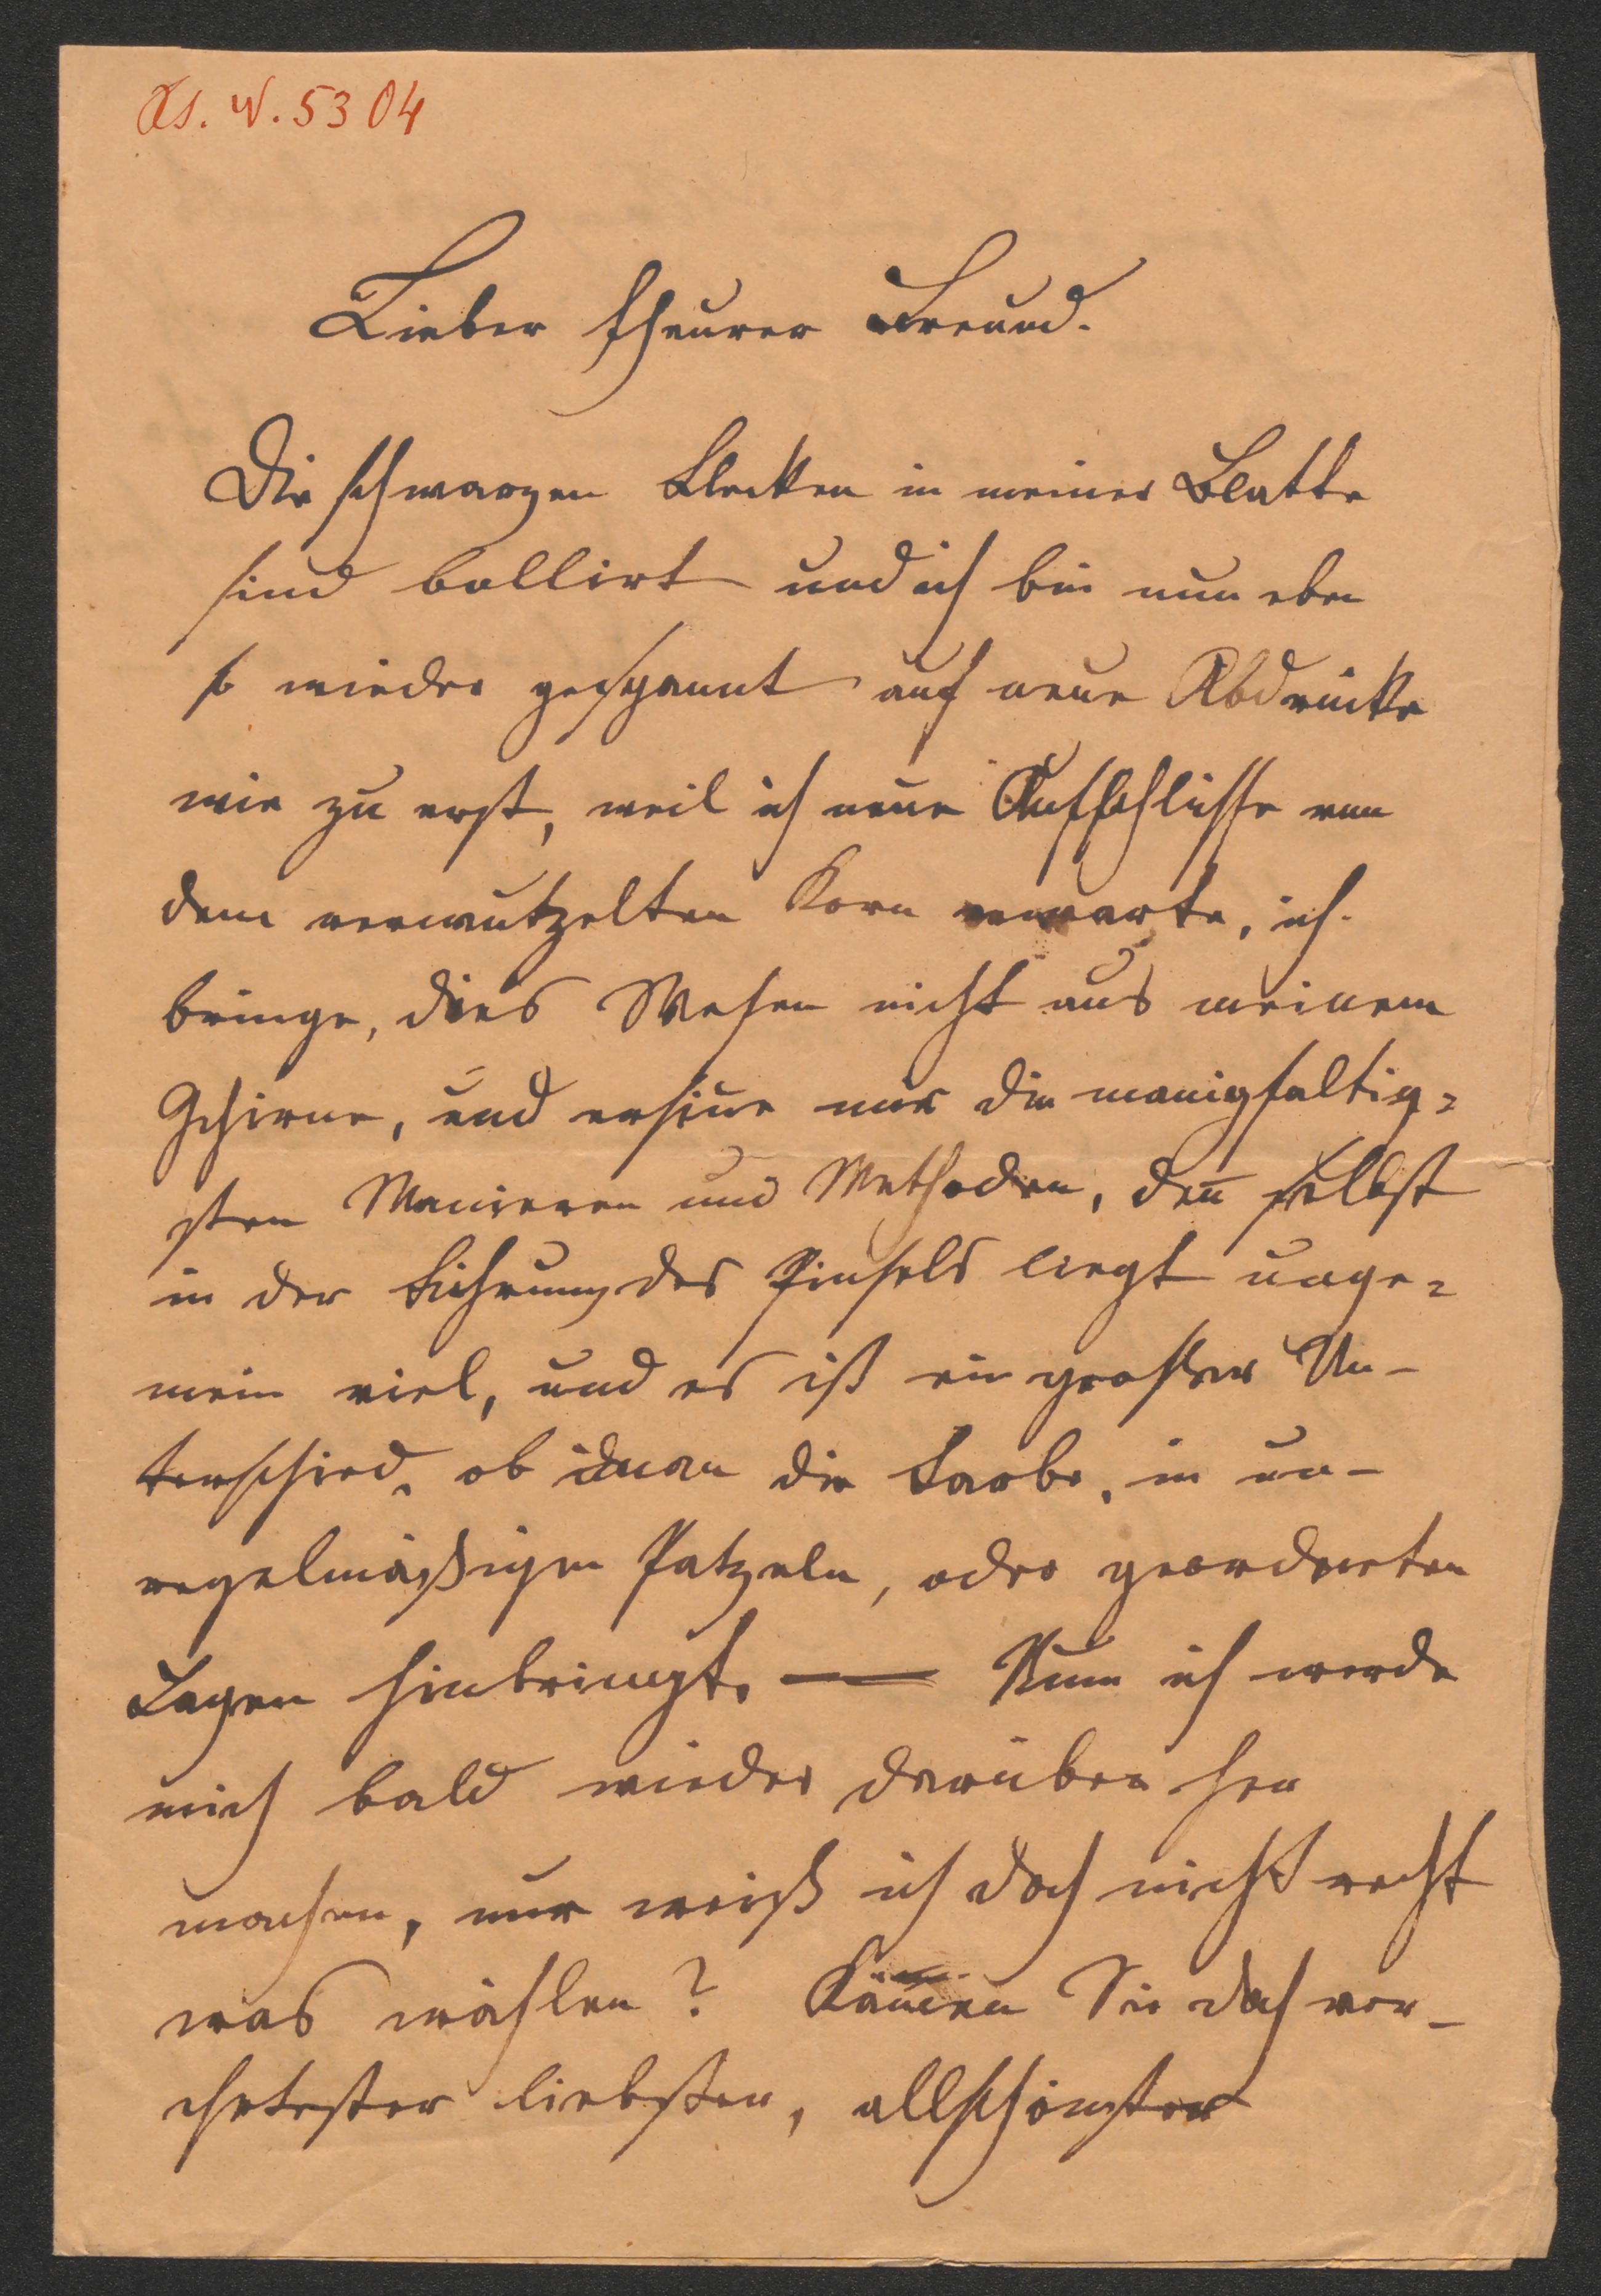 As. N. 5304
Lieber theurer Freund.
Die schwarzen Flecken in meiner Blatte
sind bollirt und ich bin nun eben
so wieder gespannt auf neue Abdrücke
wie zu erst, weil ich neue Aufschlüsse von
dem verwutzelten Korn erwarte, ich
bringe, dies Wesen nicht aus meinem
Gehirne, und ersine mir die manigfaltig=
sten Manieren und Methoden, den̄ selbst
in der Führung des Pinsels liegt unge=
mein viel, und es ist ein grosser Un-
terschied, ob man die Farbe, in un-
regelmäßigen Patzeln, oder geordneten
Lagen hinbringt. — Nun ich werde
mich bald wieder darüber her
machen, nur weiß ich doch nicht recht
was wählen? Kämen Sie doch ver-
ehrtester liebster, allschönster